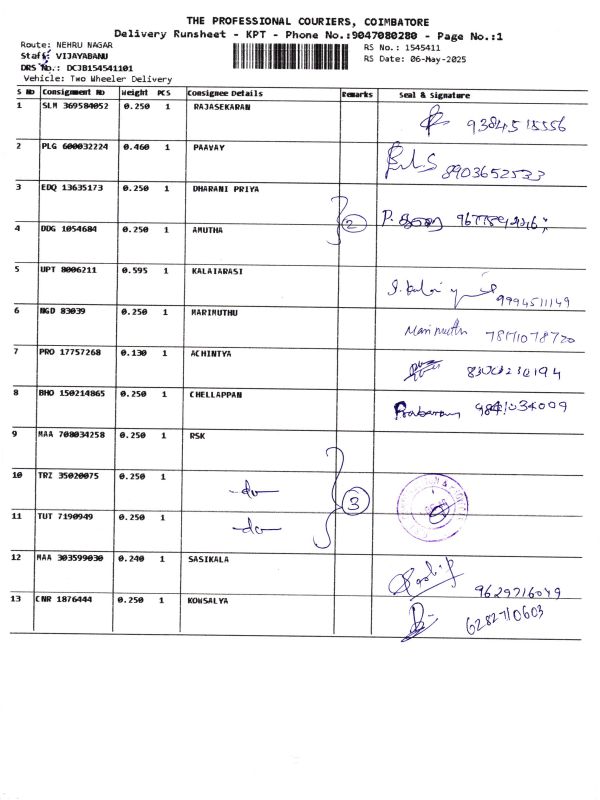 THE PROFESSIONAL COURIERS, COIMBATORE
Delivery Runsheet - KPT - Phone No.:9047080280 - Page No.:1
Route: NEHRU NAGAR RS No.: 1545411
Staff: VIJAYABANU RS Date: 06-May-2025
DRS No.: DCJB154541101
Vehicle: Two Wheeler Delivery
S No Consignment No Weight PCS Consignee Details Remarks Seal & Signature
1 SLM 369584052 0.250 1 RAJASEKARAN 9384515556
2 PLG 600032224 0.460 1 PAAVAY 8903652533
3 EDQ 13635173 0.250 1 DHARANI PRIYA
2
4 DDG 1054684 0.250 1 AMUTHA
5 UPT 8006211 0.595 1 KALAIARASI 9994511149
6 NGD 83039 0.250 1 MARIMUTHU Marimuthu
7 PRO 17757268 0.130 1 ACHINTYA
8 BHO 150214865 0.250 1 CHELLAPPAN Prabaran
9 MAA 708034258 0.250 1 RSK
10 TRZ 35020075 0.250 1 -do- 3
11 TUT 7190949 0.250 1 -do-
12 MAA 303599030 0.240 1 SASIKALA 9629716049
13 CNR 1876444 0.250 1 KOWSALYA 6282710603